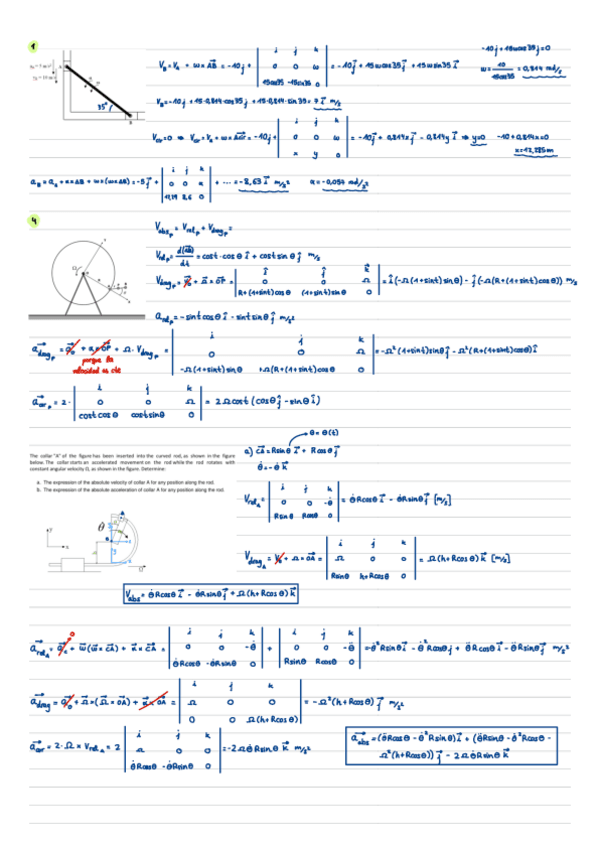 1
35°
V_B = V_A + ω×AB = -10j + | i j k ; 0 0 ω ; 15cos35 -15sin35 0 | = -10j + 15ωcos35 j + 15ωsin35 i
-10j + 15ωcos35j = 0
ω = 10/15cos35 = 0,814 rad/s
V_B = -10j + 15·0,814·cos35j + 15·0,814·sin35 = 7 i m/s
V_CIR = 0 ⇒ V_CIR = V_A + ω×ACIR = -10j + | i j k ; 0 0 ω ; x y 0 | = -10j + 0,814xj - 0,814y i ⇒ y=0 -10+0,814x=0
x=12,285m
a_B = a_A + α×AB + ω×(ω×AB) = -5j + | i j k ; 0 0 α ; 12,29 8,6 0 | + ... = -8,63 i m/s² α = -0,057 rad/s²
4
V_abs_P = V_rel_P + V_drag_P =
V_rel_P = d(AB)/dt = cost·cosθ i + cost sinθ j m/s
V_drag_P = V_0 + Ω×OP = | i j k ; 0 0 Ω ; R+(1+sint)cosθ (1+sint)sinθ 0 | = i(-Ω(1+sint)sinθ) - j(-Ω(R+(1+sint)cosθ)) m/s
a_rel_P = -sint cosθ i - sint sinθ j m/s²
a_drag_P = a_0 + α×OP + Ω·V_drag_P = | i j k ; 0 0 Ω ; -Ω(1+sint)sinθ +Ω(R+(1+sint)cosθ 0 | = -Ω²(1+sint)sinθ j - Ω²(R+(1+sint)cosθ) i
porque la
velocidad es cte
a_cor_P = 2· | i j k ; 0 0 Ω ; cost cosθ cost sinθ 0 | = 2Ωcost (cosθ j - sinθ i)
The collar "A" of the figure has been inverted into the curved rod, as shown in the figure
below. The collar starts an accelerated movement on the rod while the rod rotates with
constant angular velocity Ω, as shown in the figure. Determine:
a. The expression of the absolute velocity of collar A for any position along the rod.
b. The expression of the absolute acceleration of collar A for any position along the rod.
θ = θ(t)
a) CA = Rsinθ i + Rcosθ j
θ̇ = -θ̇ k
V_rel_A = | i j k ; 0 0 -θ̇ ; Rsinθ Rcosθ 0 | = θ̇Rcosθ i - θ̇Rsinθ j [m/s]
θ
V_drag_A = V_0 + Ω×OA = | i j k ; Ω 0 0 ; Rsinθ h+Rcosθ 0 | = Ω(h+Rcosθ) k [m/s]
V_abs = θ̇Rcosθ i - θ̇Rsinθ j + Ω(h+Rcosθ) k
a_rel_A = a_c + ω(ω×CA) + α×CA = | i j k ; 0 0 -θ̇ ; θ̇Rcosθ -θ̇Rsinθ 0 | + | i j k ; 0 0 -θ̈ ; Rsinθ Rcosθ 0 | = -θ̇²Rsinθ i - θ̇²Rcosθ j + θ̈Rcosθ i - θ̈Rsinθ j m/s²
a_drag = a_0 + Ω×(Ω×OA) + α×OA = | i j k ; Ω 0 0 ; 0 0 Ω(h+Rcosθ) | = -Ω²(h+Rcosθ) j m/s²
a_cor = 2·Ω×V_rel_A = 2 | i j k ; Ω 0 0 ; θ̇Rcosθ -θ̇Rsinθ 0 | = -2Ωθ̇Rsinθ k m/s²
a_abs = (θ̈Rcosθ - θ̇²Rsinθ) i + (θ̈Rsinθ - θ̇²Rcosθ -
Ω²(h+Rcosθ)) j - 2Ωθ̇Rsinθ k